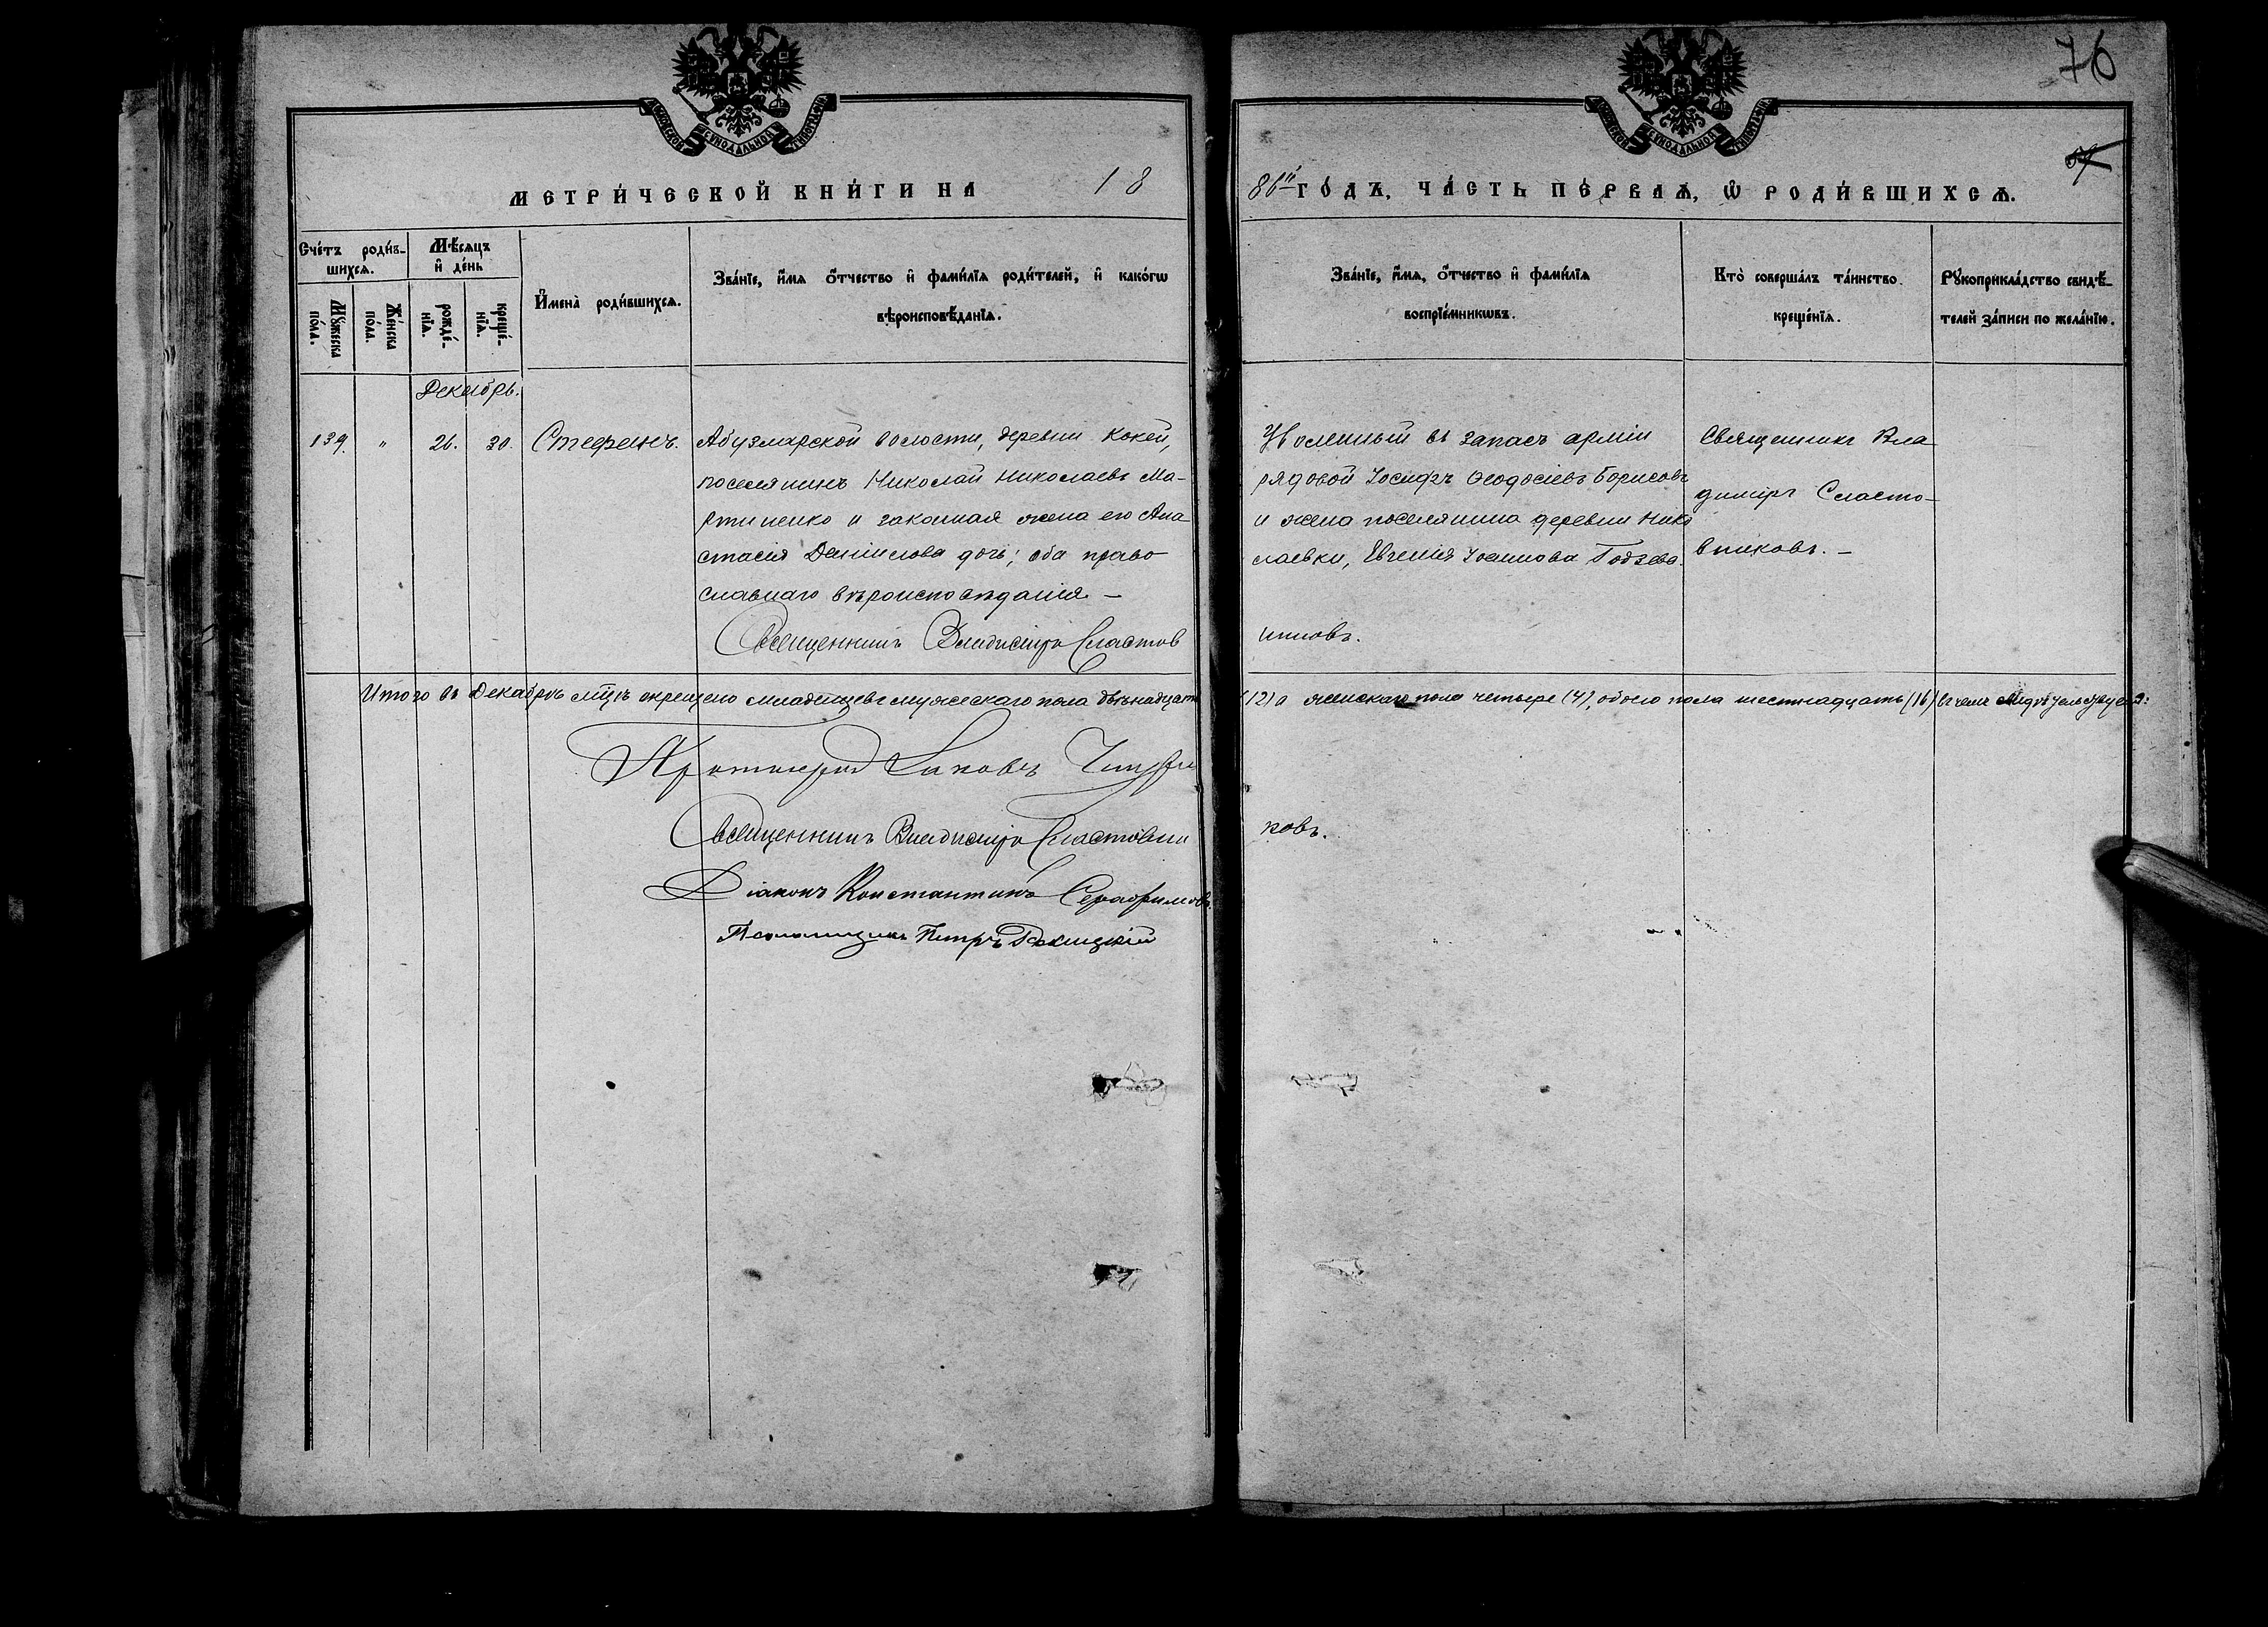 76
МЕТРИ́ЧЕСКОЙ КНИ́ГИ НА 18
86й ГО́ДЪ, ЧА́СТЬ ПЕ́РВАѦ, Ѡ РОДИ́ВШИХСѦ.
Сче́тъ роди́в-
шихсѧ.
Мѣ́сяцъ
и҆ де́нь
Мꙋ́жеска по́ла.
Же́нска по́ла.
рожде́-
нїѧ.
креще́-
нїѧ.
И҆мена̀ роди́вшихсѧ.
Зва́нїе, и҆́мѧ о҆́тчество и҆ фами́лїѧ роди́телей, и҆ како́гѡ
вѣроисповѣ́данїѧ.
Зва́нїе, и҆́мѧ, о҆́тчество и҆ фами́лїѧ
воспрїе́мникѡвъ.
Кто̀ соверша́лъ та́инство
креще́нїѧ.
Рꙋкоприкла́дство свидѣ́-
телей за́писи по жела́нїю.
Декабрь.
139. " 26. 30. Стефанъ.
Абузларской волости, деревни Кокей,
поселянинъ Николай Николаевъ Ма-
ртиненко и законная жена его Ана
стасія Даніилова дочь; оба право
славнаго вѣроисповѣданія. –
Священникъ Владиміръ Сластов
Уволенный въ запасъ арміи
рядовой Іосифъ Ѳеодосіевъ Борисовъ
и жена поселянина деревни Нико
лаевки, Евгенія Іоаннова
никовъ.
Священникъ Вла
диміръ Сласто-
вниковъ. –
Итого въ Декабрѣ мцѣ окрещено младенцевъ мужескаго пола двѣнадцать
(12) а женскаго пола четыре (4), обоего пола шестнадцать (16) въ чемъ
Протоіерей Іаковъ
ковъ.
Священникъ Владиміръ Сластовни
Діаконъ Константинъ Серафимовъ.
Псаломщикъ Петръ